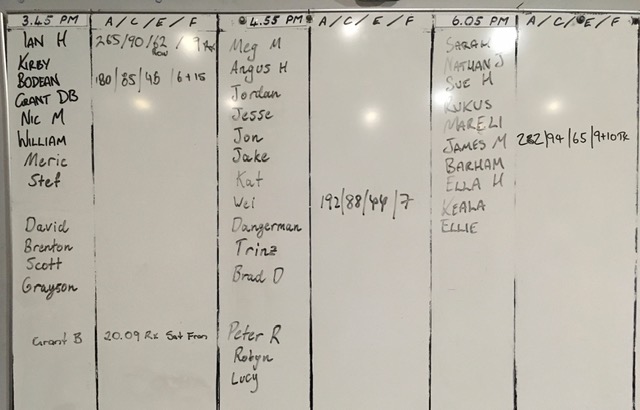 3.45 PM A/C/E/F 4.55 PM A/C/E/F 6.05 PM A/C/E/F
IAN H 265/90/62 /9 Rx
Row
KIRBY
BODEAN 180/85/48/6+15
GRANT DB
NIC M
WILLIAM
Meric
Stef
David
Brenton
Scott
Grayson
Grant B 20.09 Rx Sat From
Meg M
Angus H
Jordan
Jesse
Jon
Jake
Kat
Wei 192/88/44/7
Dangerman
Trinz
Brad D
Peter R
Robyn
Lucy
SARAH
NATHAN J
SUE H
RUKUS
MARELI
JAMES M 282/94/65/9+10 Rx
BARHAM
ELLA H
KEALA
ELLIE